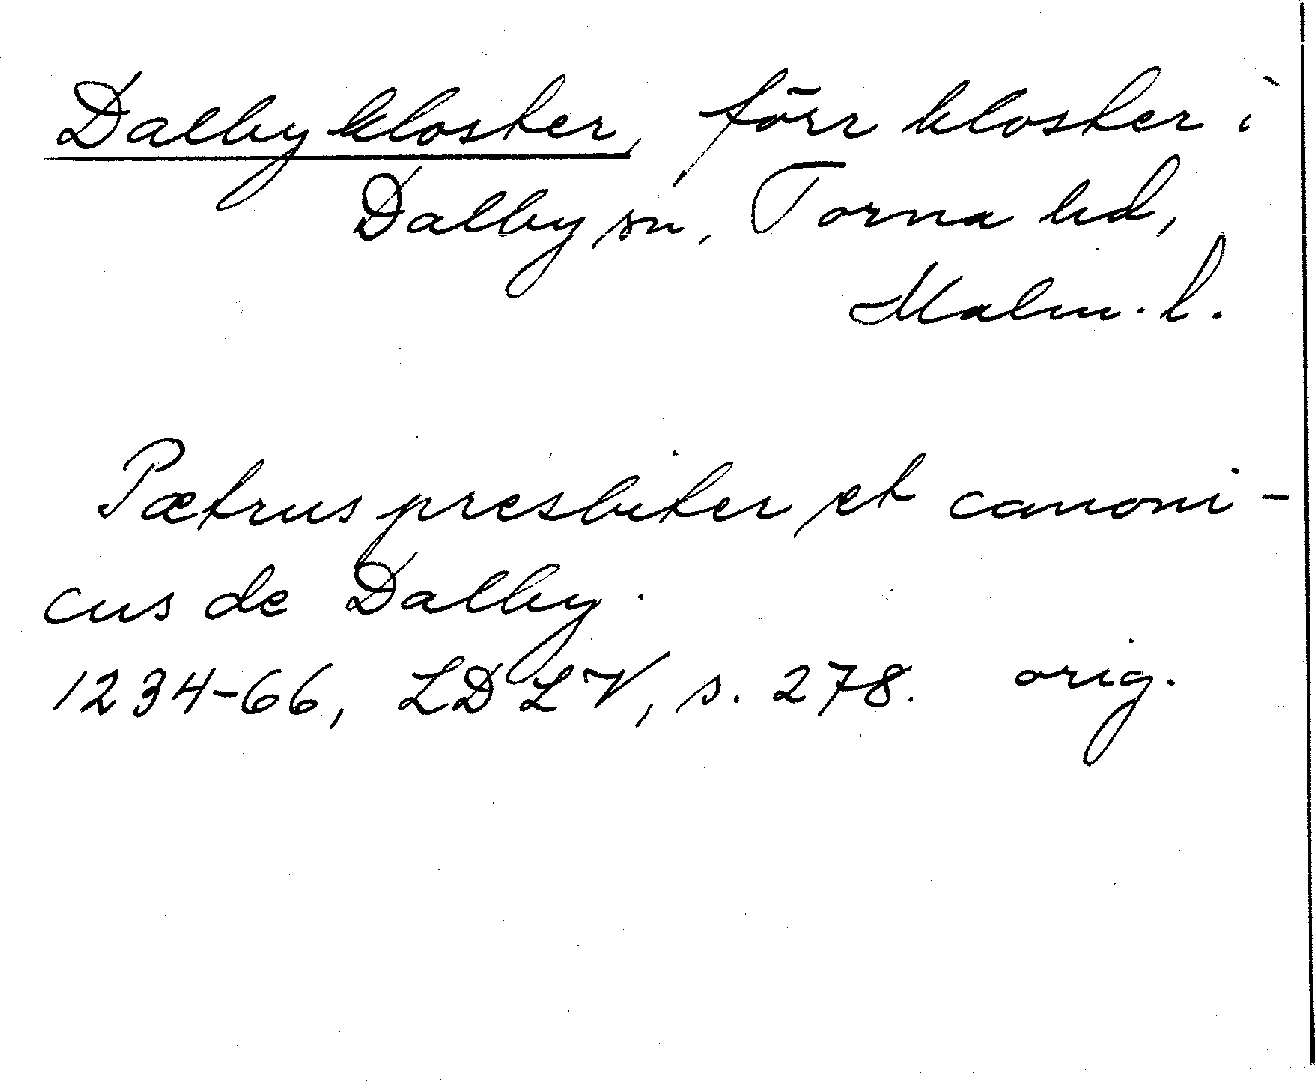 Dalby kloster, förr kloster i
Dalby sn, Torna hd,
Malm. l.
Pætrus presbiter et canoni-
cus de Dalby.
1234-66, LDLV, s. 278. orig.